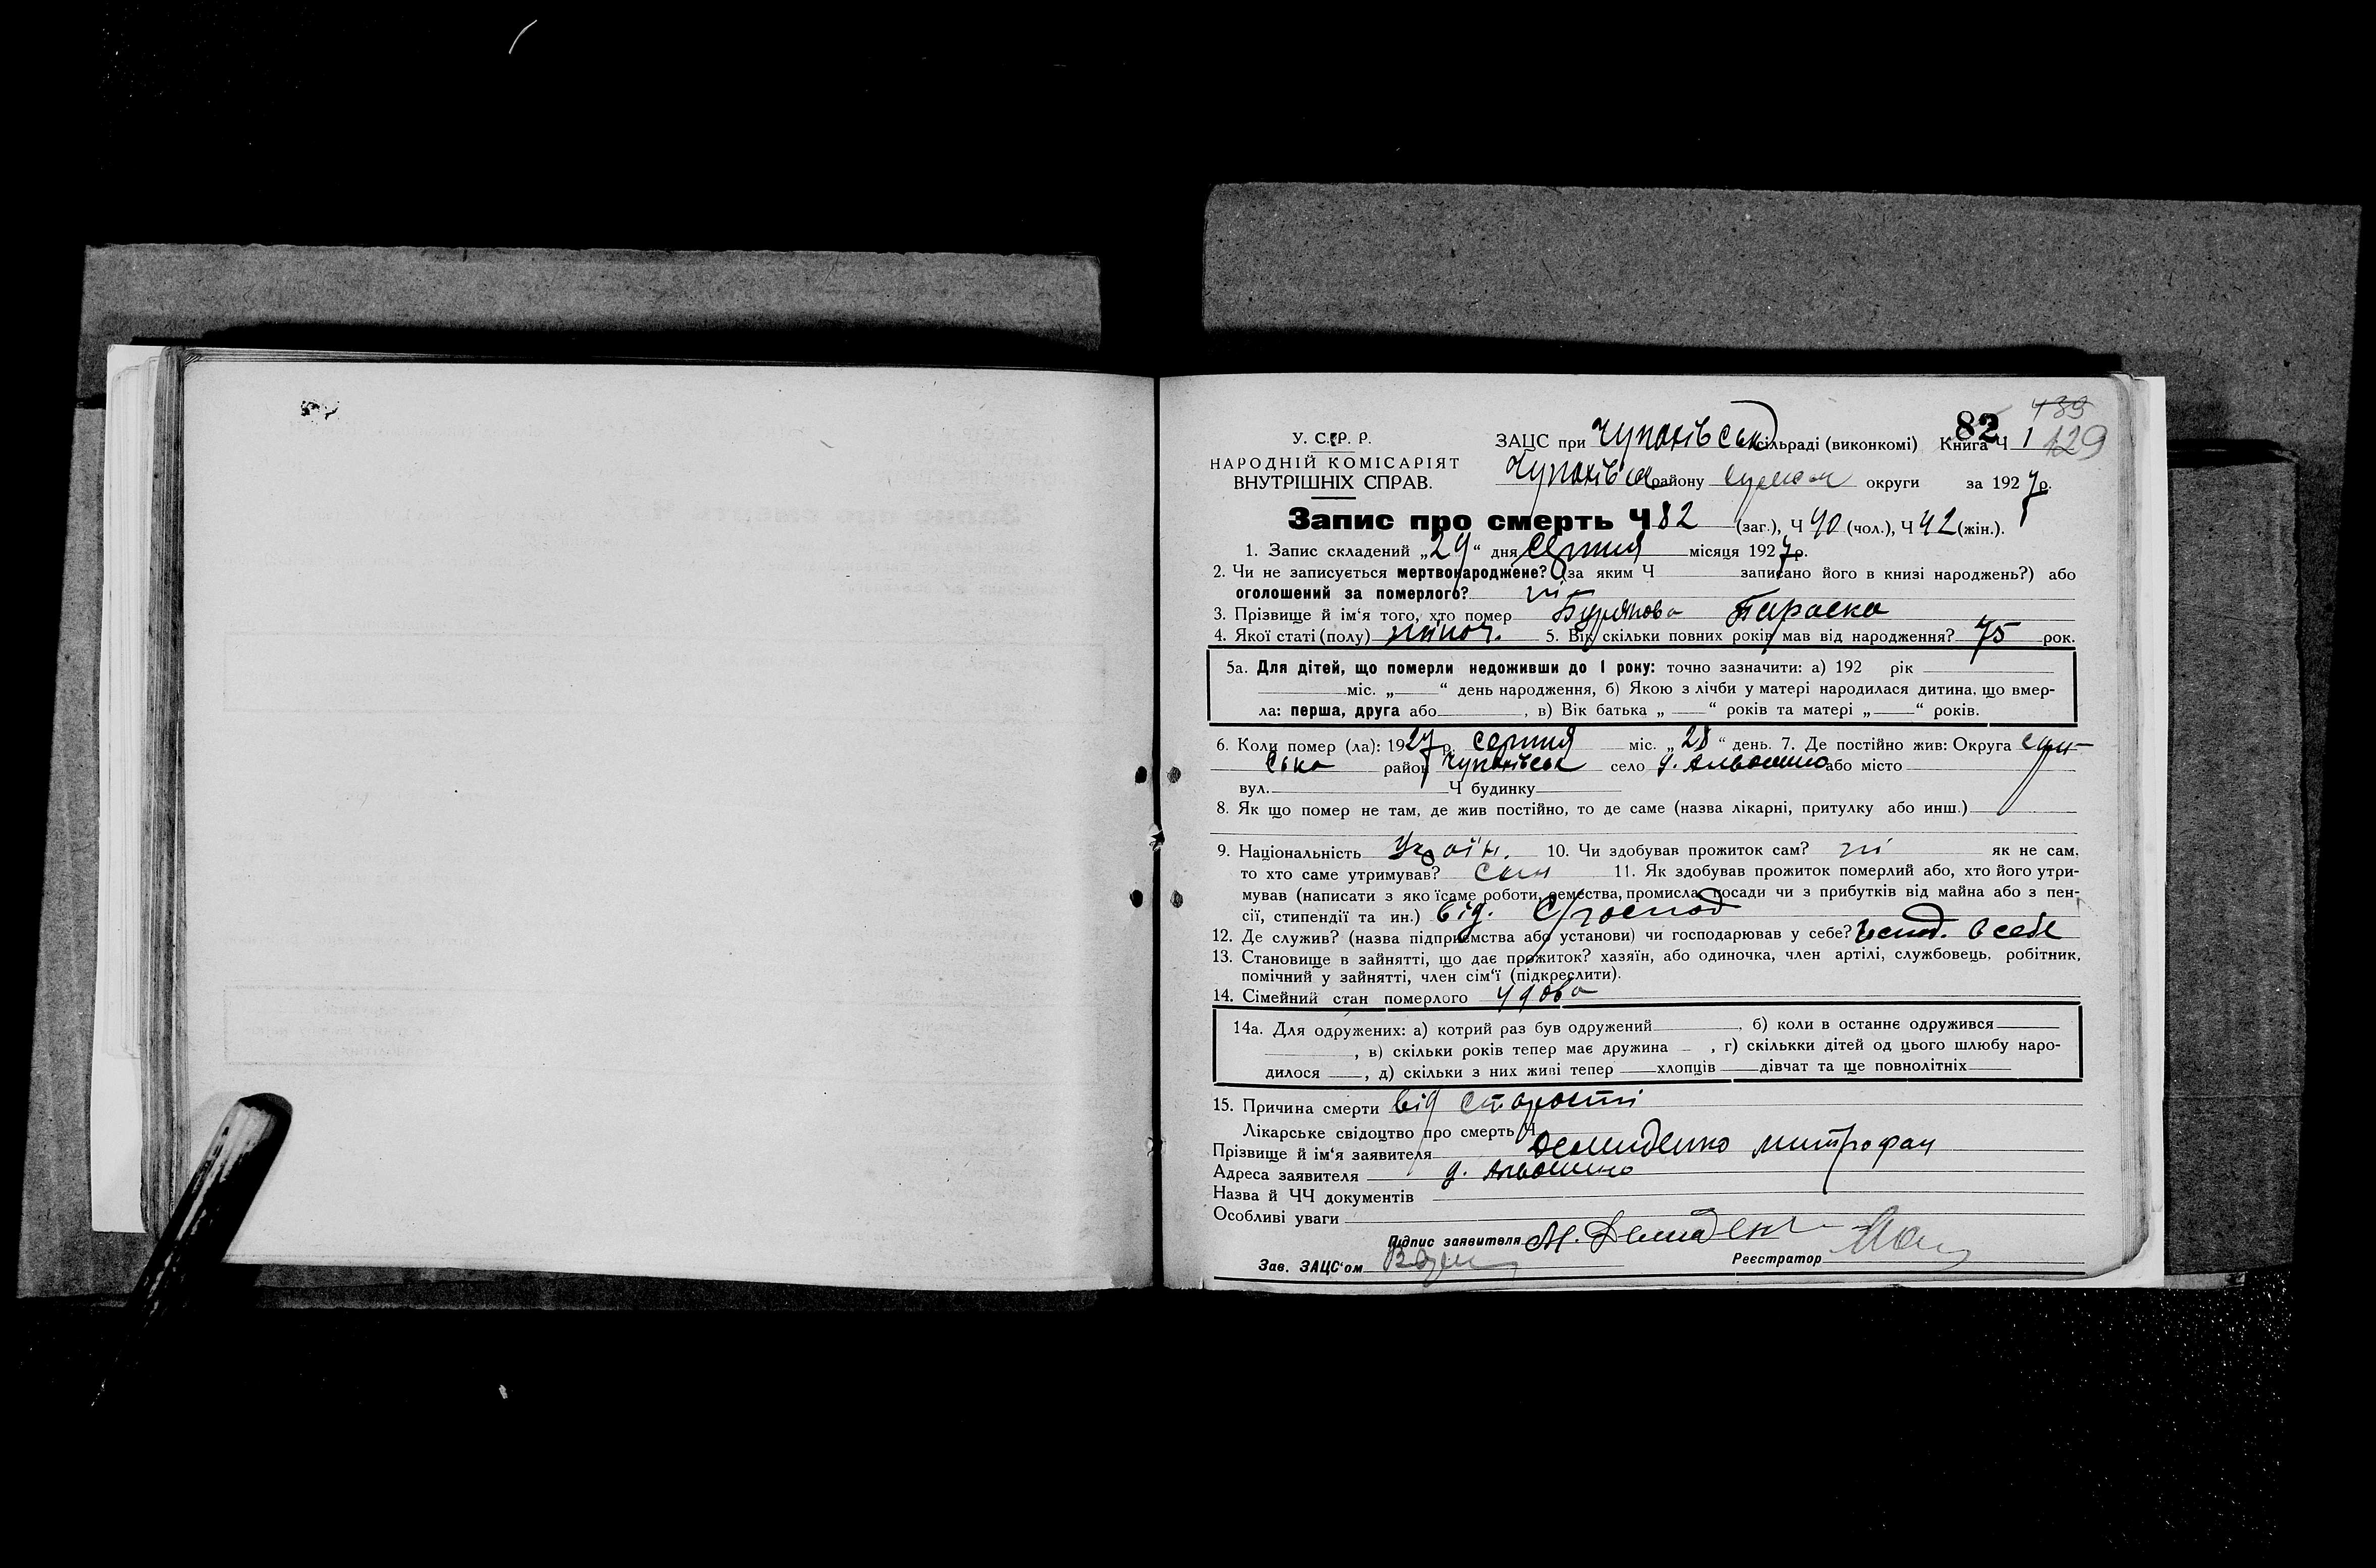 82 439
У. С. Р. Р. ЗАЦС при Чупахівськ сільраді (виконкомі) Книга Ч 1 129
НАРОДНІЙ КОМІСАРІЯТ
ВНУТРІШНІХ СПРАВ. Чупахівськ району Сумськ округи за 1927 р.
Запис про смерть Ч 82 (заг.), Ч 40 (чол.), Ч 42 (жін.).
1. Запис складений „29“ дня серпня місяця 1927 р.
2. Чи не записується мертвонароджене? (за яким Ч записано його в книзі народжень?) або
оголошений за померлого? ні
3. Прізвище й ім'я того, хто помер Бурякова Параска
4. Якої статі (полу) жіноч. 5. Вік, скільки повних років мав від народження? 75 рок.
5а. Для дітей, що померли недоживши до 1 року: точно зазначити: а) 192 рік
міс. „ “ день народження, б) Якою з лічби у матері народилася дитина, що вмер-
ла: перша, друга або , в) Вік батька „ “ років та матері „ “ років.
6. Коли помер (ла): 1927 р. серпня міс. „28“ день. 7. Де постійно жив: Округа Сум-
ська район Чупахівськ село д. Альошино або місто
вул. Ч будинку
8. Як що помер не там, де жив постійно, то де саме (назва лікарні, притулку або инш.)
9. Національність Україн. 10. Чи здобував прожиток сам? ні як не сам,
то хто саме утримував? Син 11. Як здобував прожиток померлий або, хто його утри-
мував (написати з яко їсаме роботи, ремества, промисла, посади чи з прибутків від майна або з пен-
сії, стипендії та ин.) від. С/господ
12. Де служив? (назва підприємства або установи) чи господарював у себе? Госпд. в себе
13. Становище в зайнятті, що дає прожиток? хазяїн, або одиночка, член артілі, службовець, робітник,
помічний у зайнятті, член сім'ї (підкреслити).
14. Сімейний стан померлого удова
14а. Для одружених: а) котрий раз був одружений , б) коли в останнє одружився
, в) скільки років тепер має дружина , г) скількки дітей од цього шлюбу наро-
дилося , д) скільки з них живі тепер хлопців дівчат та ще повнолітніх
15. Причина смерти від старости
Лікарське свідоцтво про смерть Ч
Прізвище й ім'я заявителя Демиденко митрофан
Адреса заявителя д. Альошино
Назва й ЧЧ документів
Особливі уваги
Підпис заявителя М. Демиден
Зав. ЗАЦС'ом Реєстратор